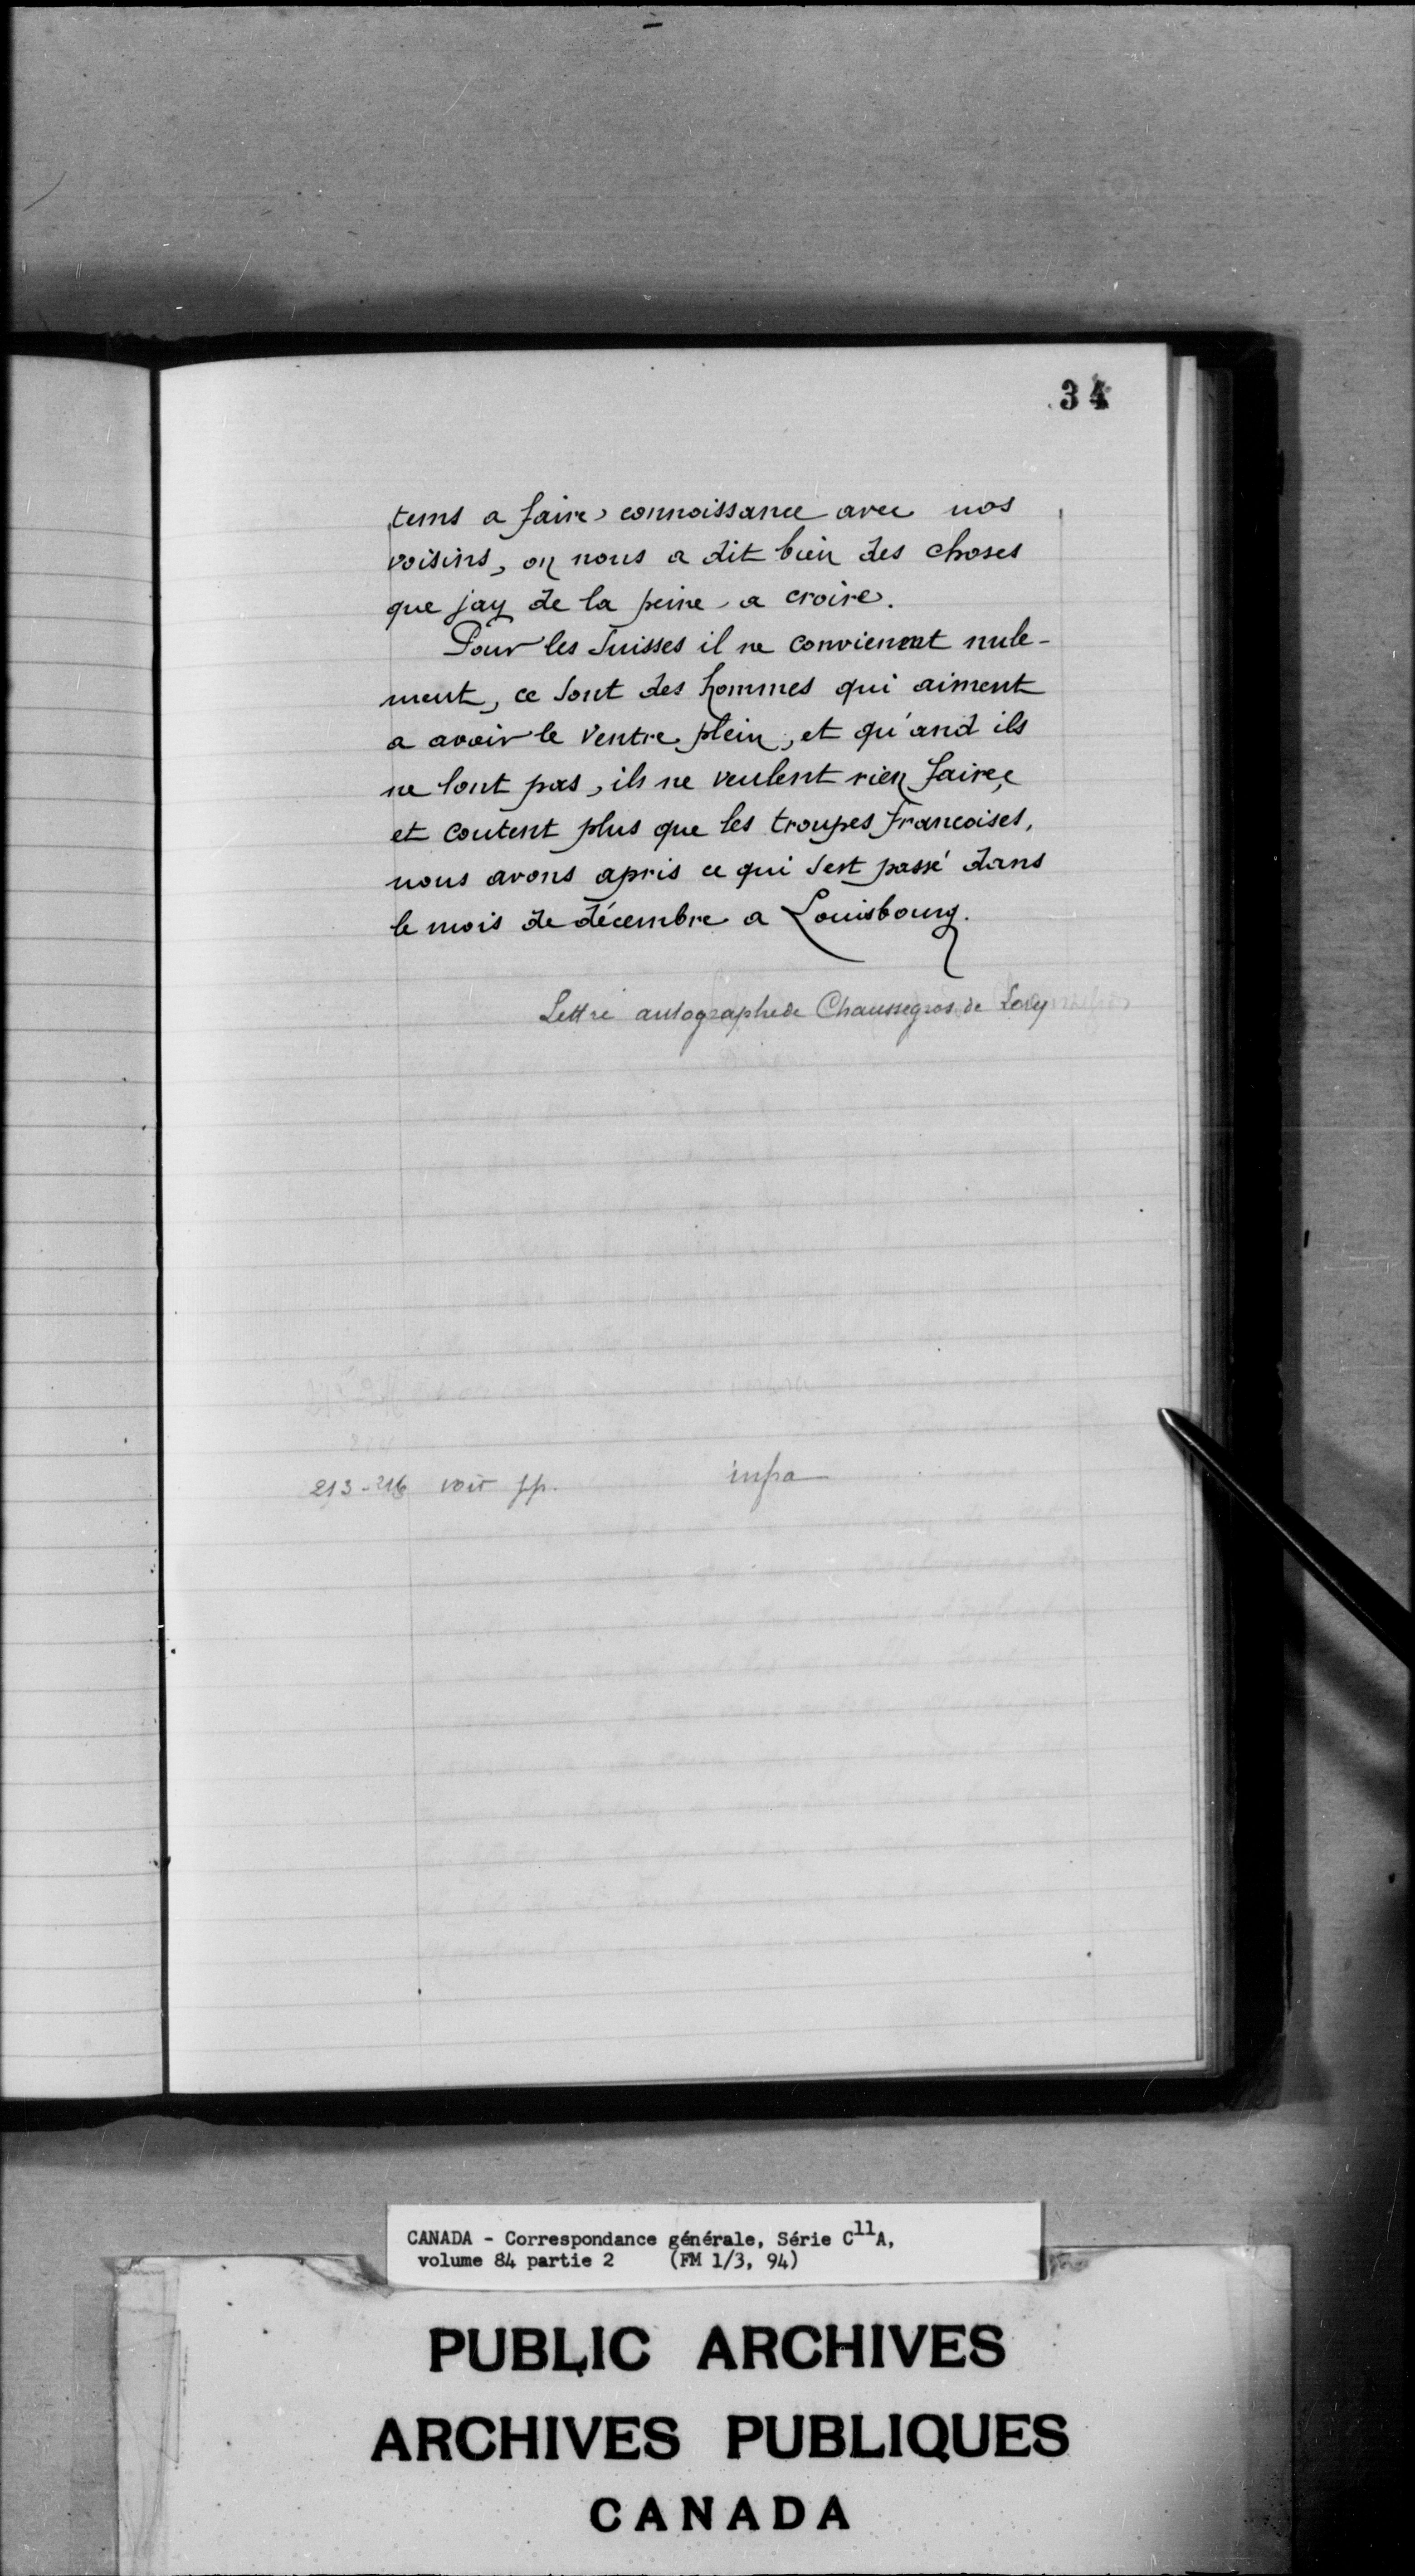 34
tems a faire connoissance avec nos
voisins, on nous a dit bien des choses
que jay de la peine a croire.
Pour les Suisses il ne convienent nule-
ment, ce sont des hommes qui aiment
a avoir le ventre plein, et qu'and ils
ne lont pas, ils ne veulent rien faire,
et coutent plus que les troupes francoises,
nous avons apris ce qui sest passé dans
le mois de décembre a Louisbourg.
Lettre autographe de Chaussegros de Lery
213-216 voir pp. infra
CANADA - Correspondance générale, Série C11A,
volume 84 partie 2 (FM 1/3, 94)
PUBLIC ARCHIVES
ARCHIVES PUBLIQUES
CANADA